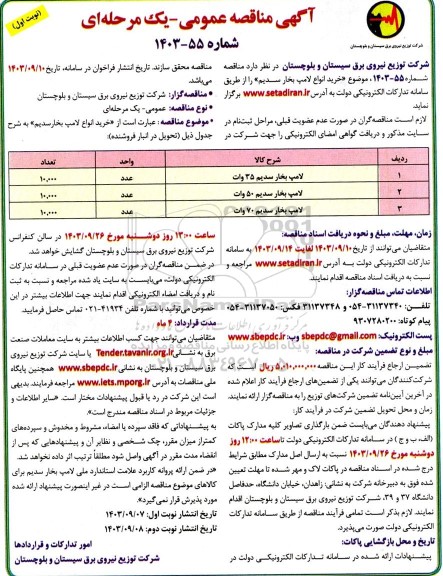 (نوبت اول)
آگهی مناقصه عمومی-یک مرحله‌ای
شماره ۵۵-۱۴۰۳
شرکت توزیع نیروی برق سیستان و بلوچستان
شرکت توزیع نیروی برق سیستان و بلوچستان در نظر دارد مناقصه
شماره ۵۵-۱۴۰۳، موضوع «خرید انواع لامپ بخار سدیم» را از طریق
سامانه تدارکات الکترونیکی دولت به آدرس www.setadiran.ir برگزار
نماید.
لازم است مناقصه‌گران در صورت عدم عضویت قبلی، مراحل ثبت‌نام در
سایت مذکور و دریافت گواهی امضای الکترونیکی را جهت شرکت در
مناقصه محقق سازند. تاریخ انتشار فراخوان در سامانه، تاریخ ۱۴۰۳/۰۹/۱۰
می‌باشد.
• مناقصه‌گزار: شرکت توزیع نیروی برق سیستان و بلوچستان
• نوع مناقصه: عمومی- یک مرحله‌ای
• موضوع مناقصه: عبارت است از «خرید انواع لامپ بخارسدیم» به شرح
جدول ذیل (تحویل در انبار فروشنده):
ردیف شرح کالا واحد تعداد
۱ لامپ بخار سدیم ۳۵ وات عدد ۱۰,۰۰۰
۲ لامپ بخار سدیم ۵۰ وات عدد ۱۰,۰۰۰
۳ لامپ بخار سدیم ۷۰ وات عدد ۱۰,۰۰۰
زمان، مهلت، مبلغ و نحوه دریافت اسناد مناقصه:
متقاضیان می‌توانند از تاریخ ۱۴۰۳/۰۹/۱۰ لغایت ۱۴۰۳/۰۹/۱۴ به سامانه
تدارکات الکترونیکی دولت به آدرس www.setadiran.ir مراجعه و
نسبت به دریافت اسناد مناقصه اقدام نمایند.
اطلاعات تماس مناقصه‌گزار:
تلفن: ۳۱۱۳۷۳۴۰-۰۵۴ و ۳۱۱۳۷۳۴۸ فکس: ۳۱۱۳۷۰۵۰-۰۵۴
پیام کوتاه: ۹۳۰۷۲۸۰۲۰۰
پست الکترونیک: sbepdc@gmail.com وب: www.sbepdc.ir
مبلغ و نوع تضمین شرکت در مناقصه:
تضمین ارجاع فرآیند کار این مناقصه ۵,۰۱۰,۰۰۰,۰۰۰ ریال است که
شرکت‌کنندگان می‌توانند یکی از تضمین‌های ارجاع فرآیند کار اعلام شده
در آخرین آیین‌نامه تضمین شرکت‌های توزیع را به مناقصه‌گزار ارائه نمایند.
زمان و محل تحویل تضمین شرکت در فرآیند کار:
پیشنهاد دهندگان می‌بایست ضمن بارگذاری تصاویر کلیه مدارک پاکات
(الف و ب و ج) در سامانه تدارکات الکترونیکی دولت تا ساعت ۱۲:۰۰ روز
دوشنبه مورخ ۱۴۰۳/۰۹/۲۶ نسبت به ارسال اصل مدارک مطابق شرایط
درج شده در اسناد مناقصه در پاکات لاک و مهر شده تا مهلت تعیین
شده فوق به دبیرخانه شرکت به نشانی: زاهدان، خیابان دانشگاه، حدفاصل
دانشگاه ۳۷ و ۳۹، شرکت توزیع نیروی برق سیستان و بلوچستان اقدام
نمایند. لازم بذکر است تمامی فرآیند مناقصه از طریق سامانه تدارکات
الکترونیکی دولت صورت می‌پذیرد.
تاریخ و محل بازگشایی پاکات:
پیشنهادات ارائه شده در سامانه تدارکات الکترونیکی دولت در
ساعت ۱۳:۰۰ روز دوشنبه مورخ ۱۴۰۳/۰۹/۲۶ در سالن کنفرانس
شرکت توزیع نیروی برق سیستان و بلوچستان گشایش خواهد شد.
در ضمن مناقصه‌گران در صورت عدم عضویت قبلی در سامانه تدارکات
الکترونیکی دولت، می‌بایست به سایت یاد شده مراجعه و نسبت به ثبت
نام و دریافت امضاء الکترونیکی اقدام نمایند جهت اطلاعات بیشتر در این
خصوص می‌توانید با شماره تلفن ۴۱۹۳۴-۰۲۱ تماس حاصل فرمایید.
مدت قرارداد: ۴ ماه
متقاضیان می‌توانند جهت کسب اطلاعات بیشتر به سایت معاملات صنعت
برق به نشانی Tender.tavanir.org.ir یا سایت شرکت توزیع نیروی
برق سیستان و بلوچستان به نشانی www.sbepdc.ir همچنین پایگاه
ملی مناقصات به آدرس www.iets.mporg.ir مراجعه فرمایند. بدیهی
است این شرکت در رد یا قبول پیشنهادات مختار است. «سایر اطلاعات و
جزئیات مربوط در اسناد مناقصه مندرج است».
به پیشنهاداتی که فاقد سپرده یا امضاء، مشروط و مخدوش و سپرده‌های
کمتر از میزان مقرر، چک شخصی و نظایر آن و پیشنهادهایی که پس از
انقضاء مدت مقرر در آگهی واصل شود مطلقاً ترتیب اثر داده نخواهد شد.
«در ضمن ارائه پروانه کاربرد علامت استاندارد ملی لامپ بخار سدیم برای
کالاهای موضوع مناقصه الزامی است در غیر اینصورت پیشنهاد ارائه شده
مورد پذیرش قرار نمی‌گیرد».
تاریخ انتشار نوبت اول: ۱۴۰۳/۰۹/۰۷
تاریخ انتشار نوبت دوم: ۱۴۰۳/۰۹/۰۸
امور تدارکات و قراردادها
شرکت توزیع نیروی برق سیستان و بلوچستان